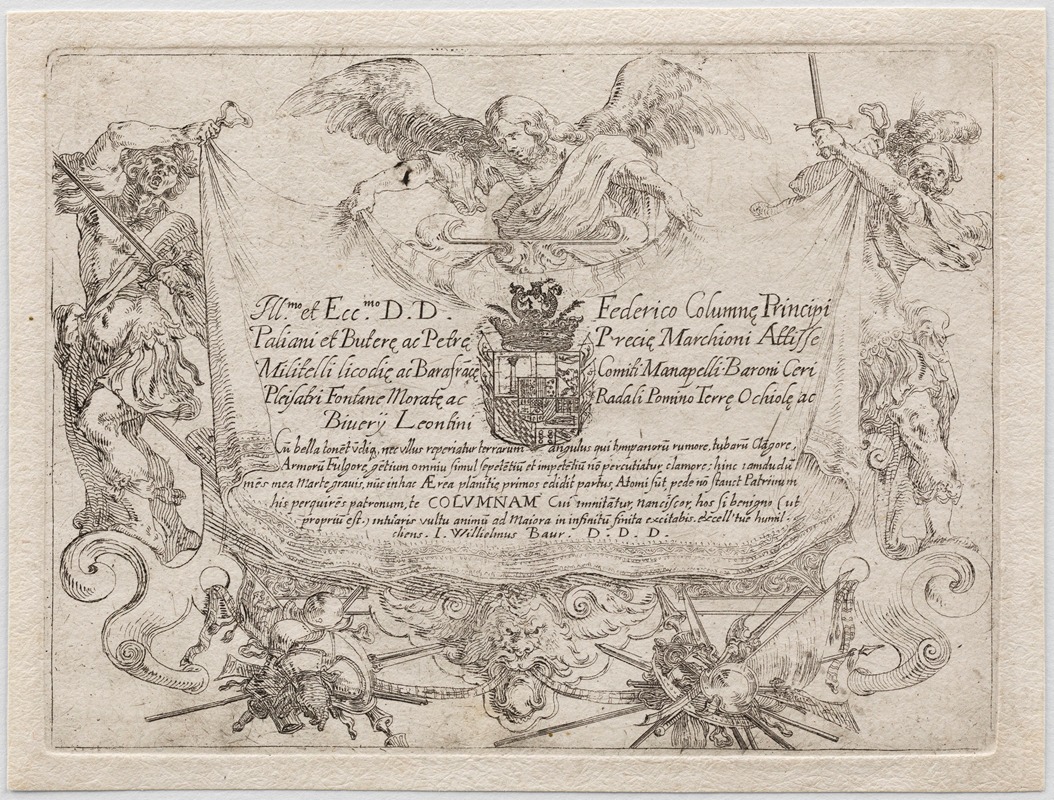 Ill.mo et Ecc.mo D. D. Federico Columnę Principi
Paliani et Buterę ac Petrę Precię Marchioni Attisse
Militelli licodię ac Barafrācę Comiti Manapelli Baroni Ceri
Pleisatri Fontane Moratę ac Radali Pomino Terrę Ochiolę ac
Biuerÿ Leontini
Cū bella tonēt ūdiq, nec vllus reperiatur terrarum angulus qui tympanorū rumore, tubarū Clāgore,
Armorū Fulgore, gētium omniū simul sepetētiū et impetētiū nō percutiatur clamore; hinc tandudū
mēs mea Marte grauis, nūc in hac Ærea planitie primos edidit partus, Atomi sūt, pede nō stanct Patrinum
his perquirēs patronum, te COLVMNAM Cui innitātur, nanciscor, hos si benigno (ut
propriū est) intuaris vultu animū ad Maiora in infinitū finita excitabis. excell tuę humil.
cliens. I. Wilhelmus Baur. D. D. D.